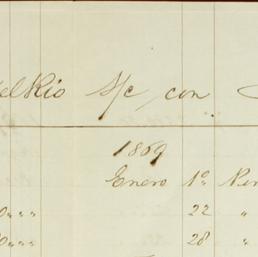 del Rio S/c con
1869
Enero 1º
0 〃 〃 〃 22 〃
0 〃 〃 〃 28 〃